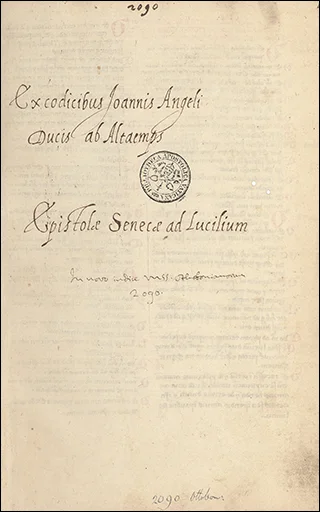 2090
Ex codicibus Joannis Angeli
Ducis ab Altaemps
BIBLIOTHECA APOSTOLICA VATICANA
Epistolæ Senecæ ad Lucilium
In novo indice mss.
2090.
2090 Ottobon.